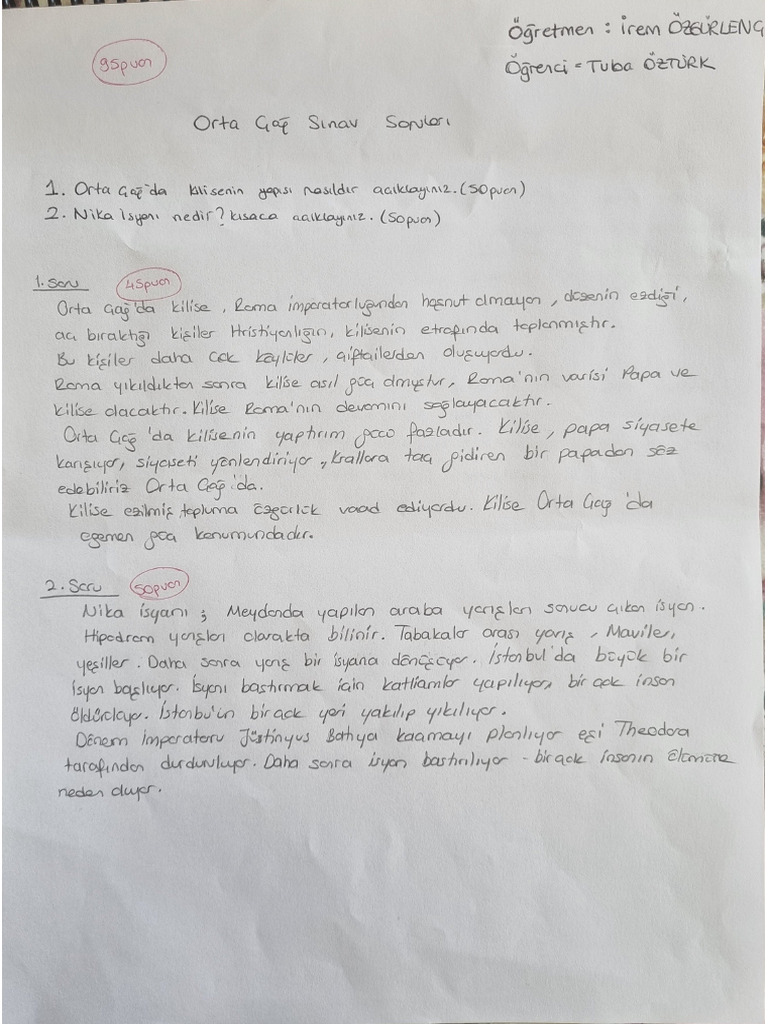 Öğretmen : İrem ÖZGÜRLENG
95puan
Öğrenci = Tuba ÖZTÜRK
Orta Çağ Sınav Soruları
1. Orta Çağ'da kilisenin yapısı nasıldır açıklayınız. (50puan)
2. Nika isyanı nedir? kısaca açıklayınız. (50puan)
1. Soru 45puan
Orta Çağ'da kilise, Roma imparatorluğundan hoşnut olmayan, düzenin ezdiği,
aç bıraktığı kişiler Hristiyanlığın, kilisenin etrafında toplanmıştır.
Bu kişiler daha çok köylüler, çiftçilerden oluşuyordu.
Roma yıkıldıktan sonra kilise asıl güç olmuştur, Roma'nın varisi Papa ve
kilise olacaktır. Kilise Roma'nın devamını sağlayacaktır.
Orta Çağ'da kilisenin yaptırım gücü fazladır. Kilise, papa siyasete
karışıyor, siyaseti yönlendiriyor, Krallara taç giydiren bir papadan söz
edebiliriz Orta Çağ'da.
Kilise ezilmiş topluma özgürlük vaad ediyordu. Kilise Orta Çağ'da
egemen güç konumundadır.
2. Soru 50puan
Nika isyanı; Meydanda yapılan araba yarışları sonucu çıkan isyan.
Hipodrom yarışları olarakta bilinir. Tabakalar arası yarış, Maviler,
yeşiller. Daha sonra yarış bir isyana dönüşüyor. İstanbul'da büyük bir
isyan başlıyor. İsyanı bastırmak için katliamlar yapılıyor, bir çok insan
öldürülüyor. İstanbu'ın bir çok yeri yakılıp yıkılıyor.
Dönem imparatoru Jüstinyus Batıya kaçmayı planlıyor eşi Theodora
tarafından durduruluyor. Daha sonra isyan bastırılıyor - bir çok insanın ölümüne
neden oluyor.